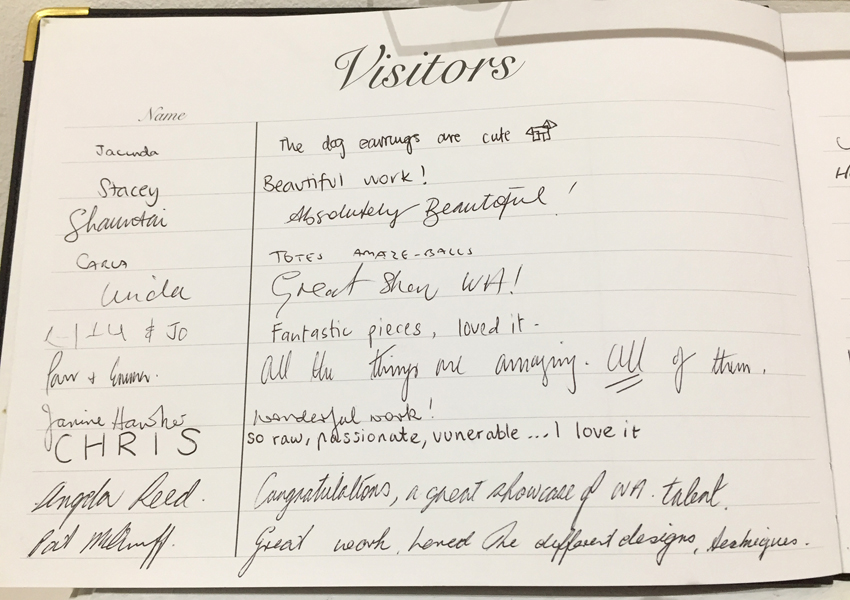 Visitors
Name
Jacinda The dog earrings are cute
Stacey Beautiful work!
Absolutely Beautiful!
CARLA TOTES AMAZE-BALLS
Linda Great Show WA!
& JO Fantastic pieces, loved it -
All the things are amazing. All of them.
Janine Hawker wonderful work!
CHRIS so raw, passionate, vunerable ... I love it
Angela Reed. Congratulations, a great showcase of WA. talent.
Pat Great work, Loved the different designs, techniques.